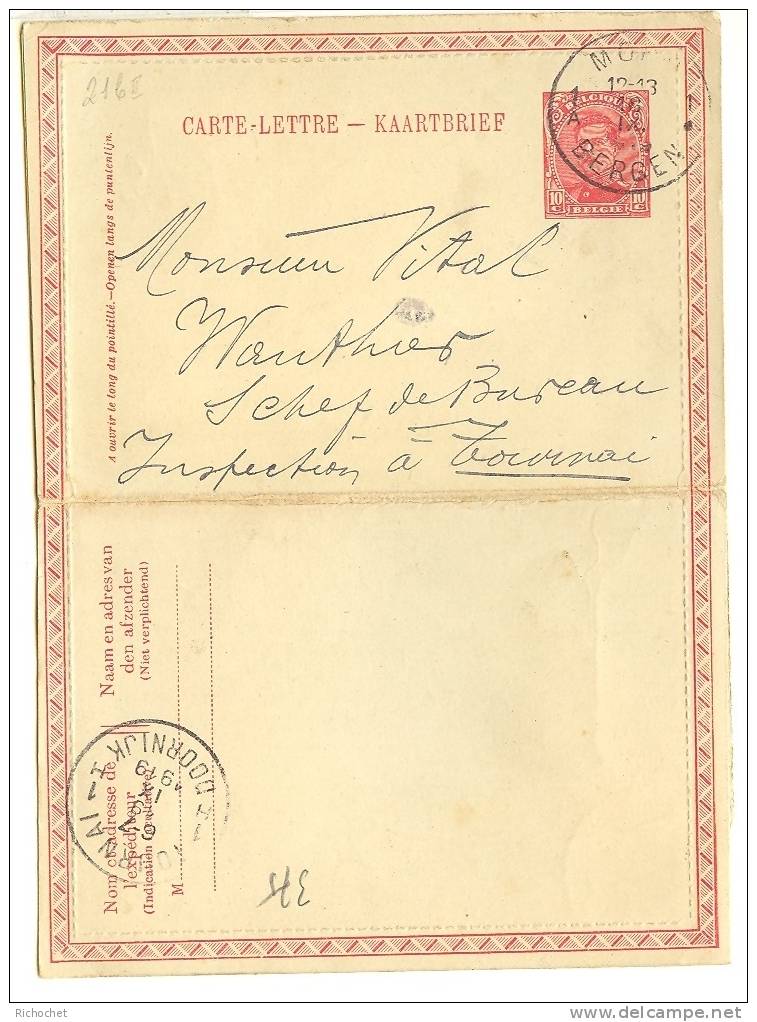 216 II
CARTE-LETTRE — KAARTBRIEF
BELGIQUE
10 C
BELGIE
10 C
12-13
1A
1
BERGEN
A ouvrir le long du pointillé.—Openen langs de puntenlijn.
Monsieur Vital
Wauthier
Schef de Bureau
Inspection à Tournai
Naam en adres van
den afzender
(Niet verplichtend)
Nom et adresse de
l'expéditeur
(Indication facultative)
M
DOORNIJK
1919
Richochet
www.delcampe.net